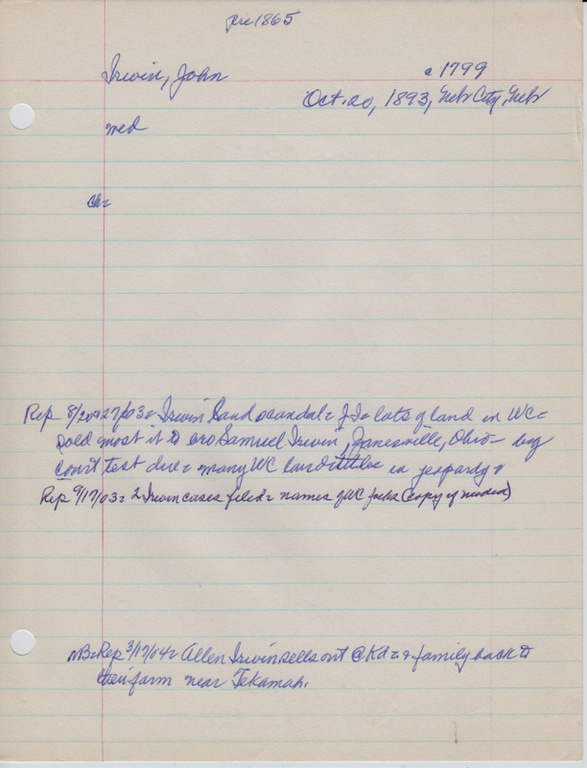 pre 1865
Irwin, John c 1799
Oct. 20, 1893, Neb City, Neb
med
ch=
Rep 8/20&27/03= Irwin land scandal= JI= lots of land in WC=
sold most it to bro Samuel Irwin, Zanesville, Ohio= big
court test due= many WC land titles in jeopardy
Rep 9/17/03= 2 Irwin cases filed= names of WC folks (copy if needed)
NB=Rep 3/17/04= Allen Irwin sells out @ Kd= & family back to
their farm near Tekamah.